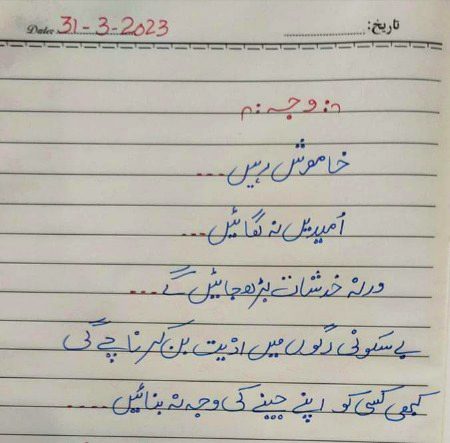 Date: 31-3-2023 تاریخ:
؞ وجہ ؞
خاموش رہیں ...
اُمیدیں نہ لگائیں ...
ورنہ خدشات بڑھ جائیں گے ....
بے سکونی رگوں میں اذیت بن کر ناچے گی
کبھی کسی کو اپنے جینے کی وجہ نہ بنائیں .....